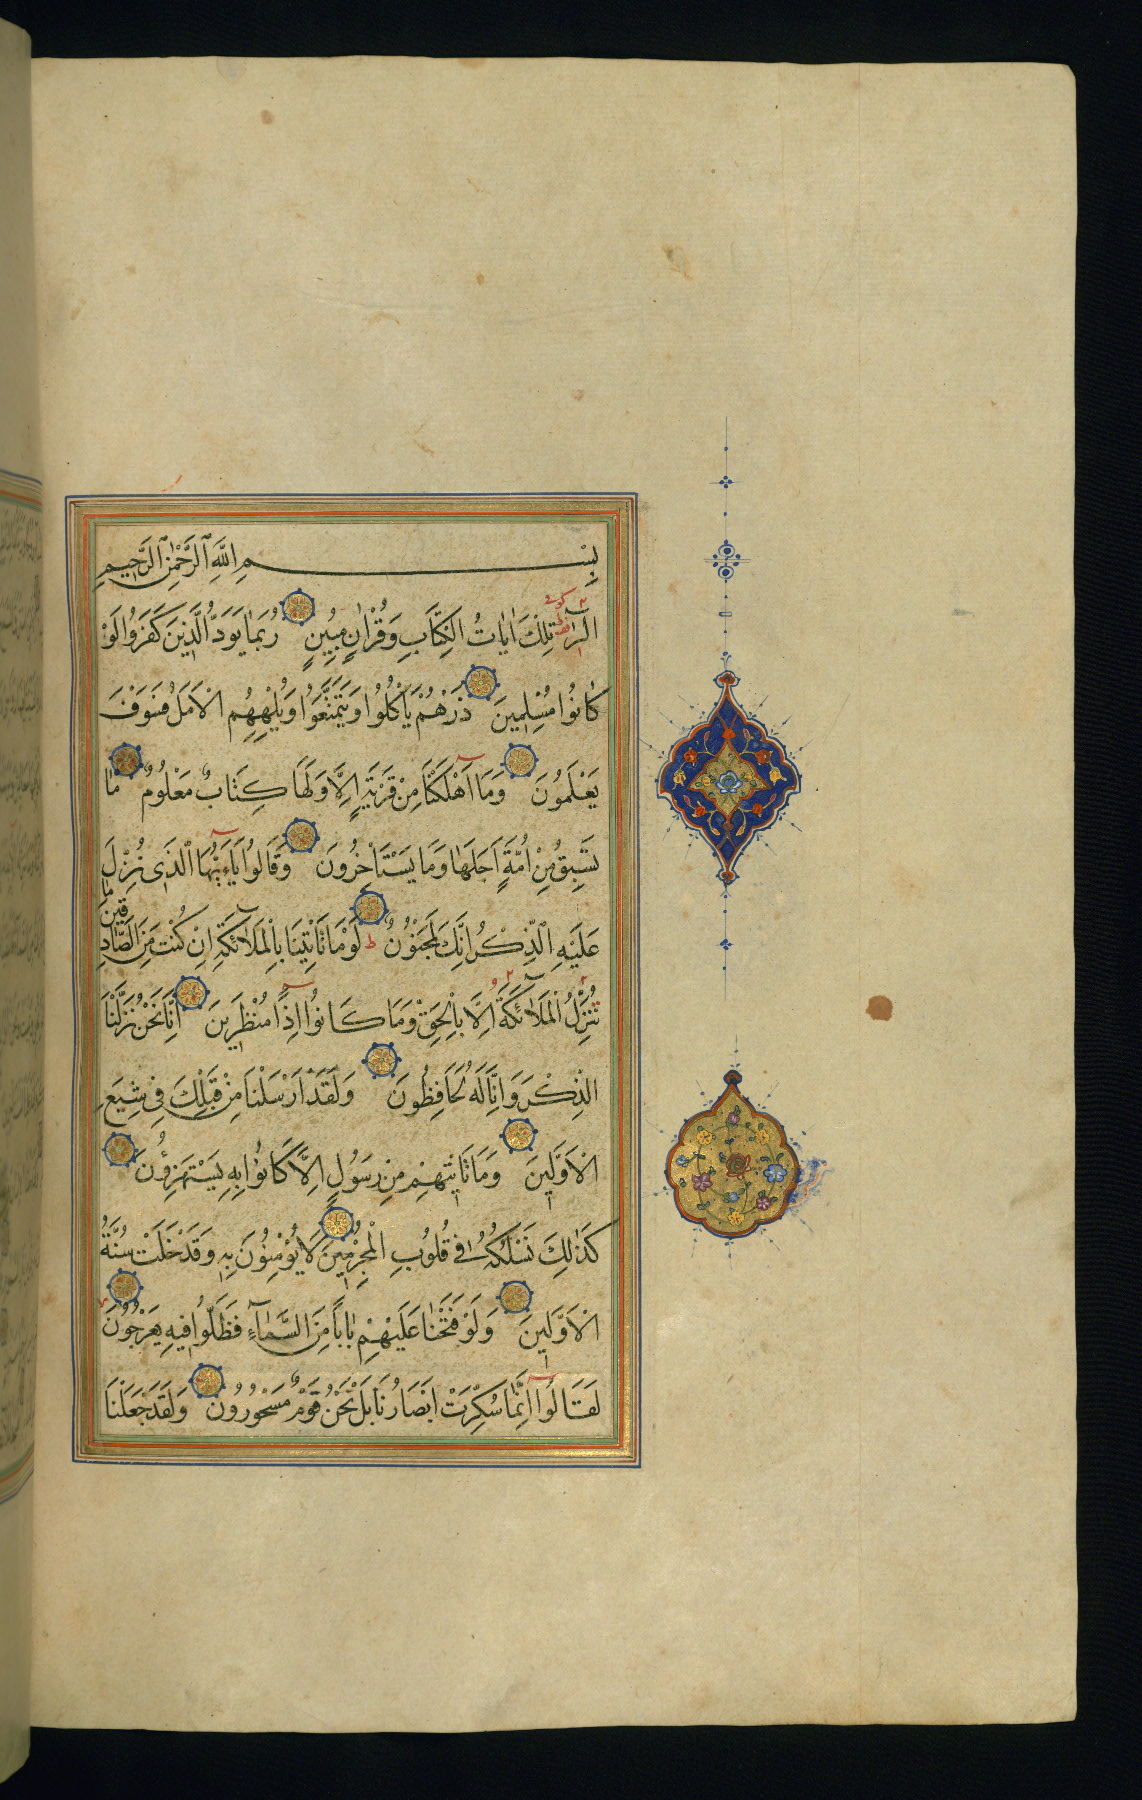 بِسْمِ اللَّهِ الرَّحْمٰنِ الرَّحِيمِ
الٓرٰ تِلْكَ اٰيَاتُ الْكِتَابِ وَقُرْاٰنٍ مُبِينٍ رُبَمَا يَوَدُّ الَّذِينَ كَفَرُوا لَوْ
كَانُوا مُسْلِمِينَ ذَرْهُمْ يَأْكُلُوا وَيَتَمَتَّعُوا وَيُلْهِهِمُ الْاَمَلُ فَسَوْفَ
يَعْلَمُونَ وَمَا اَهْلَكْنَا مِنْ قَرْيَةٍ اِلَّا وَلَهَا كِتَابٌ مَعْلُومٌ مَا
تَسْبِقُ مِنْ اُمَّةٍ اَجَلَهَا وَمَا يَسْتَأْخِرُونَ وَقَالُوا يَآ اَيُّهَا الَّذِى نُزِّلَ
عَلَيْهِ الذِّكْرُ اِنَّكَ لَمَجْنُونٌ ط لَوْمَا تَأْتِينَا بِالْمَلَائِكَةِ اِنْ كُنْتَ مِنَ الصَّادِقِينَ مَا
نُنَزِّلُ الْمَلَائِكَةَ اِلَّا بِالْحَقِّ وَمَا كَانُوا اِذًا مُنْظَرِينَ اِنَّا نَحْنُ نَزَّلْنَا
الذِّكْرَ وَاِنَّا لَهُ لَحَافِظُونَ وَلَقَدْ اَرْسَلْنَا مِنْ قَبْلِكَ فِى شِيَعِ
الْاَوَّلِينَ وَمَا يَأْتِيهِمْ مِنْ رَسُولٍ اِلَّا كَانُوا بِهِ يَسْتَهْزِؤُنَ
كَذٰلِكَ نَسْلُكُهُ فِى قُلُوبِ الْمُجْرِمِينَ لَا يُؤْمِنُونَ بِهِ وَقَدْ خَلَتْ سُنَّةُ
الْاَوَّلِينَ وَلَوْ فَتَحْنَا عَلَيْهِمْ بَابًا مِنَ السَّمَآءِ فَظَلُّوا فِيهِ يَعْرُجُونَ
لَقَالُوا اِنَّمَا سُكِّرَتْ اَبْصَارُنَا بَلْ نَحْنُ قَوْمٌ مَسْحُورُونَ وَلَقَدْ جَعَلْنَا